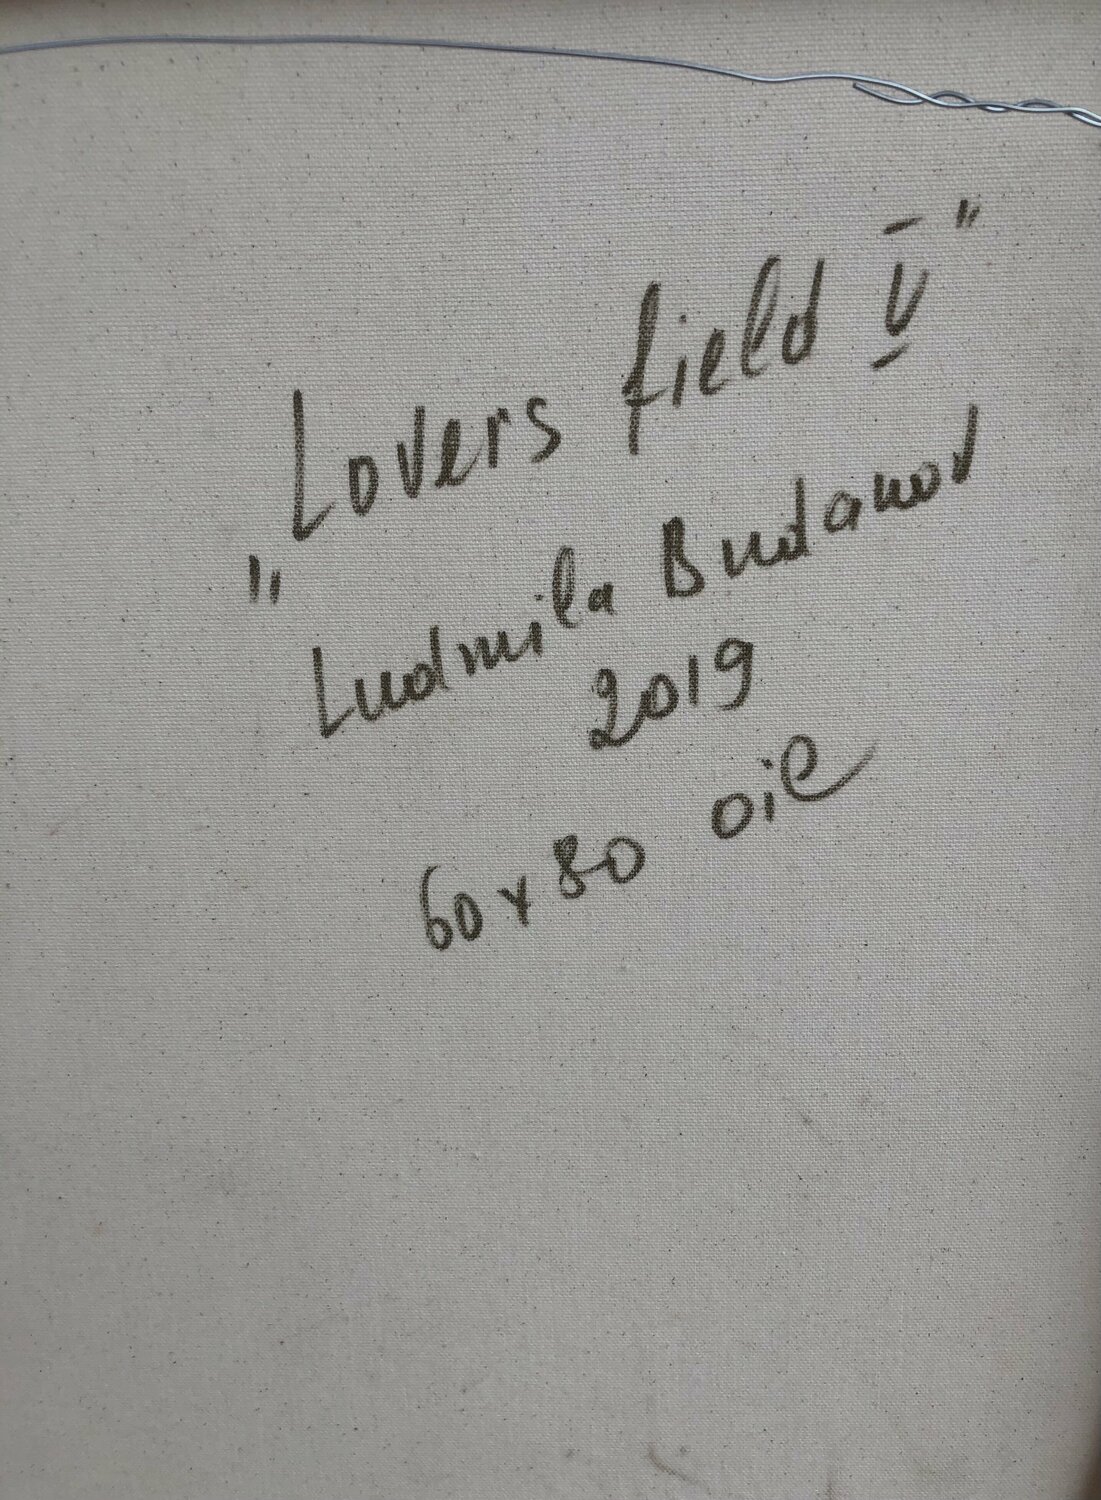 "Lovers field V"
Ludmila Budanov
2019
60x80 oil